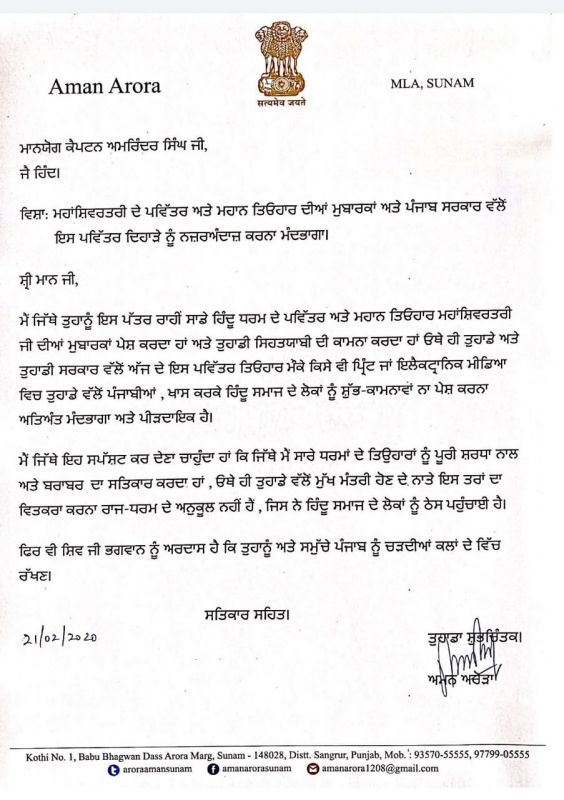 Aman Arora
सत्यमेव जयते
MLA, SUNAM
ਮਾਨਯੋਗ ਕੈਪਟਨ ਅਮਰਿੰਦਰ ਸਿੰਘ ਜੀ,
ਜੈ ਹਿੰਦ।
ਵਿਸ਼ਾ: ਮਹਾਂਸ਼ਿਵਰਤਰੀ ਦੇ ਪਵਿੱਤਰ ਅਤੇ ਮਹਾਨ ਤਿਓਹਾਰ ਦੀਆਂ ਮੁਬਾਰਕਾਂ ਅਤੇ ਪੰਜਾਬ ਸਰਕਾਰ ਵੱਲੋਂ
ਇਸ ਪਵਿੱਤਰ ਦਿਹਾੜੇ ਨੂੰ ਨਜ਼ਰਅੰਦਾਜ਼ ਕਰਨਾ ਮੰਦਭਾਗਾ।
ਸ਼੍ਰੀ ਮਾਨ ਜੀ,
ਮੈਂ ਜਿੱਥੇ ਤੁਹਾਨੂੰ ਇਸ ਪੱਤਰ ਰਾਹੀਂ ਸਾਡੇ ਹਿੰਦੂ ਧਰਮ ਦੇ ਪਵਿੱਤਰ ਅਤੇ ਮਹਾਨ ਤਿਓਹਾਰ ਮਹਾਂਸ਼ਿਵਰਤਰੀ
ਜੀ ਦੀਆਂ ਮੁਬਾਰਕਾਂ ਪੇਸ਼ ਕਰਦਾ ਹਾਂ ਅਤੇ ਤੁਹਾਡੀ ਸਿਹਤਯਾਬੀ ਦੀ ਕਾਮਨਾ ਕਰਦਾ ਹਾਂ ਓਥੇ ਹੀ ਤੁਹਾਡੇ ਅਤੇ
ਤੁਹਾਡੀ ਸਰਕਾਰ ਵੱਲੋਂ ਅੱਜ ਦੇ ਇਸ ਪਵਿੱਤਰ ਤਿਓਹਾਰ ਮੌਕੇ ਕਿਸੇ ਵੀ ਪ੍ਰਿੰਟ ਜਾਂ ਇਲੈਕਟ੍ਰਾਨਿਕ ਮੀਡਿਆ
ਵਿਚ ਤੁਹਾਡੇ ਵੱਲੋਂ ਪੰਜਾਬੀਆਂ , ਖਾਸ ਕਰਕੇ ਹਿੰਦੂ ਸਮਾਜ ਦੇ ਲੋਕਾਂ ਨੂੰ ਸ਼ੁੱਭ-ਕਾਮਨਾਵਾਂ ਨਾ ਪੇਸ਼ ਕਰਨਾ
ਅਤਿਅੰਤ ਮੰਦਭਾਗਾ ਅਤੇ ਪੀੜਦਾਇਕ ਹੈ।
ਮੈਂ ਜਿੱਥੇ ਇਹ ਸਪੱਸ਼ਟ ਕਰ ਦੇਣਾ ਚਾਹੁੰਦਾ ਹਾਂ ਕਿ ਜਿੱਥੇ ਮੈਂ ਸਾਰੇ ਧਰਮਾਂ ਦੇ ਤਿਉਹਾਰਾਂ ਨੂੰ ਪੂਰੀ ਸ਼ਰਧਾ ਨਾਲ
ਅਤੇ ਬਰਾਬਰ ਦਾ ਸਤਿਕਾਰ ਕਰਦਾ ਹਾਂ , ਓਥੇ ਹੀ ਤੁਹਾਡੇ ਵੱਲੋਂ ਮੁੱਖ ਮੰਤਰੀ ਹੋਣ ਦੇ ਨਾਤੇ ਇਸ ਤਰਾਂ ਦਾ
ਵਿਤਕਰਾ ਕਰਨਾ ਰਾਜ-ਧਰਮ ਦੇ ਅਨੁਕੂਲ ਨਹੀਂ ਹੈਂ , ਜਿਸ ਨੇ ਹਿੰਦੂ ਸਮਾਜ ਦੇ ਲੋਕਾਂ ਨੂੰ ਠੇਸ ਪਹੁੰਚਾਈ ਹੈ।
ਫਿਰ ਵੀ ਸ਼ਿਵ ਜੀ ਭਗਵਾਨ ਨੂੰ ਅਰਦਾਸ ਹੈ ਕਿ ਤੁਹਾਨੂੰ ਅਤੇ ਸਮੁੱਚੇ ਪੰਜਾਬ ਨੂੰ ਚੜਦੀਆਂ ਕਲਾਂ ਦੇ ਵਿੱਚ
ਰੱਖਣ।
ਸਤਿਕਾਰ ਸਹਿਤ।
21/02/2020
ਤੁਹਾਡਾ ਸ਼ੁਭਚਿੰਤਕ।
ਅਮਨ ਅਰੋੜਾ
Kothi No. 1, Babu Bhagwan Dass Arora Marg, Sunam - 148028, Distt. Sangrur, Punjab, Mob.: 93570-55555, 97799-05555
aroraamansunam amanarorasunam amanarora1208@gmail.com